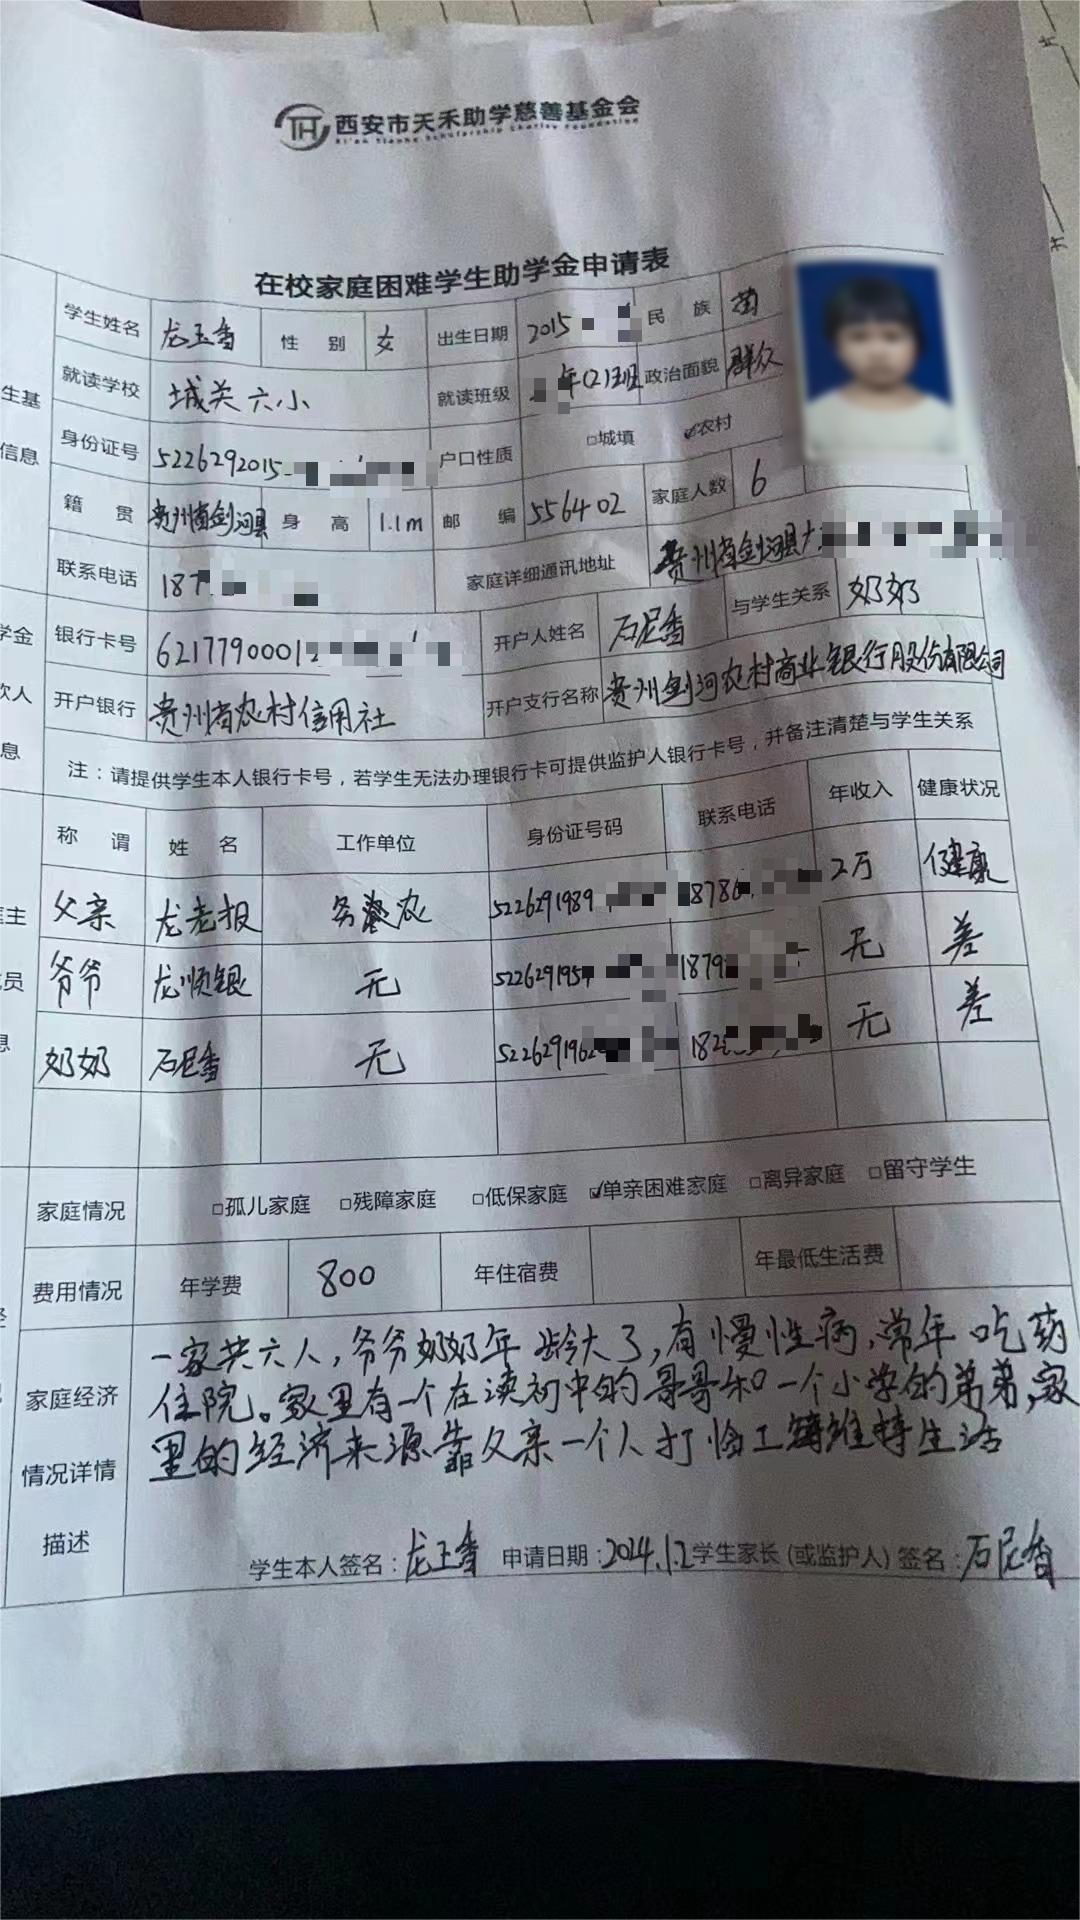 TH 西安市天禾助学慈善基金会
Xi'an Tianhe Scholarship Charity Foundation
在校家庭困难学生助学金申请表
学生姓名 龙玉香 性 别 女 出生日期 2015 民 族 苗
生基 就读学校 城关六小 就读班级 年(2)班 政治面貌 群众
信息 身份证号 5226292015 户口性质 □城填 ☑农村
籍 贯 贵州省剑河县 身 高 1.1m 邮 编 556402 家庭人数 6
联系电话 187 家庭详细通讯地址 贵州省剑河县
学金 银行卡号 62177900012 开户人姓名 石尼香 与学生关系 奶奶
款人 开户银行 贵州省农村信用社 开户支行名称 贵州剑河农村商业银行股份有限公司
息 注：请提供学生本人银行卡号，若学生无法办理银行卡可提供监护人银行卡号，并备注清楚与学生关系
称 谓 姓 名 工作单位 身份证号码 联系电话 年收入 健康状况
庭主 父亲 龙老报 务农 5226291989 18786 2万 健康
员 爷爷 龙顺银 无 522629195 1879 无 差
息 奶奶 石尼香 无 522629196 182 无 差
家庭情况 □孤儿家庭 □残障家庭 □低保家庭 ☑单亲困难家庭 □离异家庭 □留守学生
费用情况 年学费 800 年住宿费 年最低生活费
一家共六人，爷爷奶奶年龄大了，有慢性病，常年吃药
家庭经济 住院。家里有一个在读初中的哥哥和一个小学的弟弟，家
情况详情 里的经济来源靠父亲一个人打临工维持生活
描述
学生本人签名：龙玉香 申请日期：2024.1.2 学生家长(或监护人)签名：石尼香